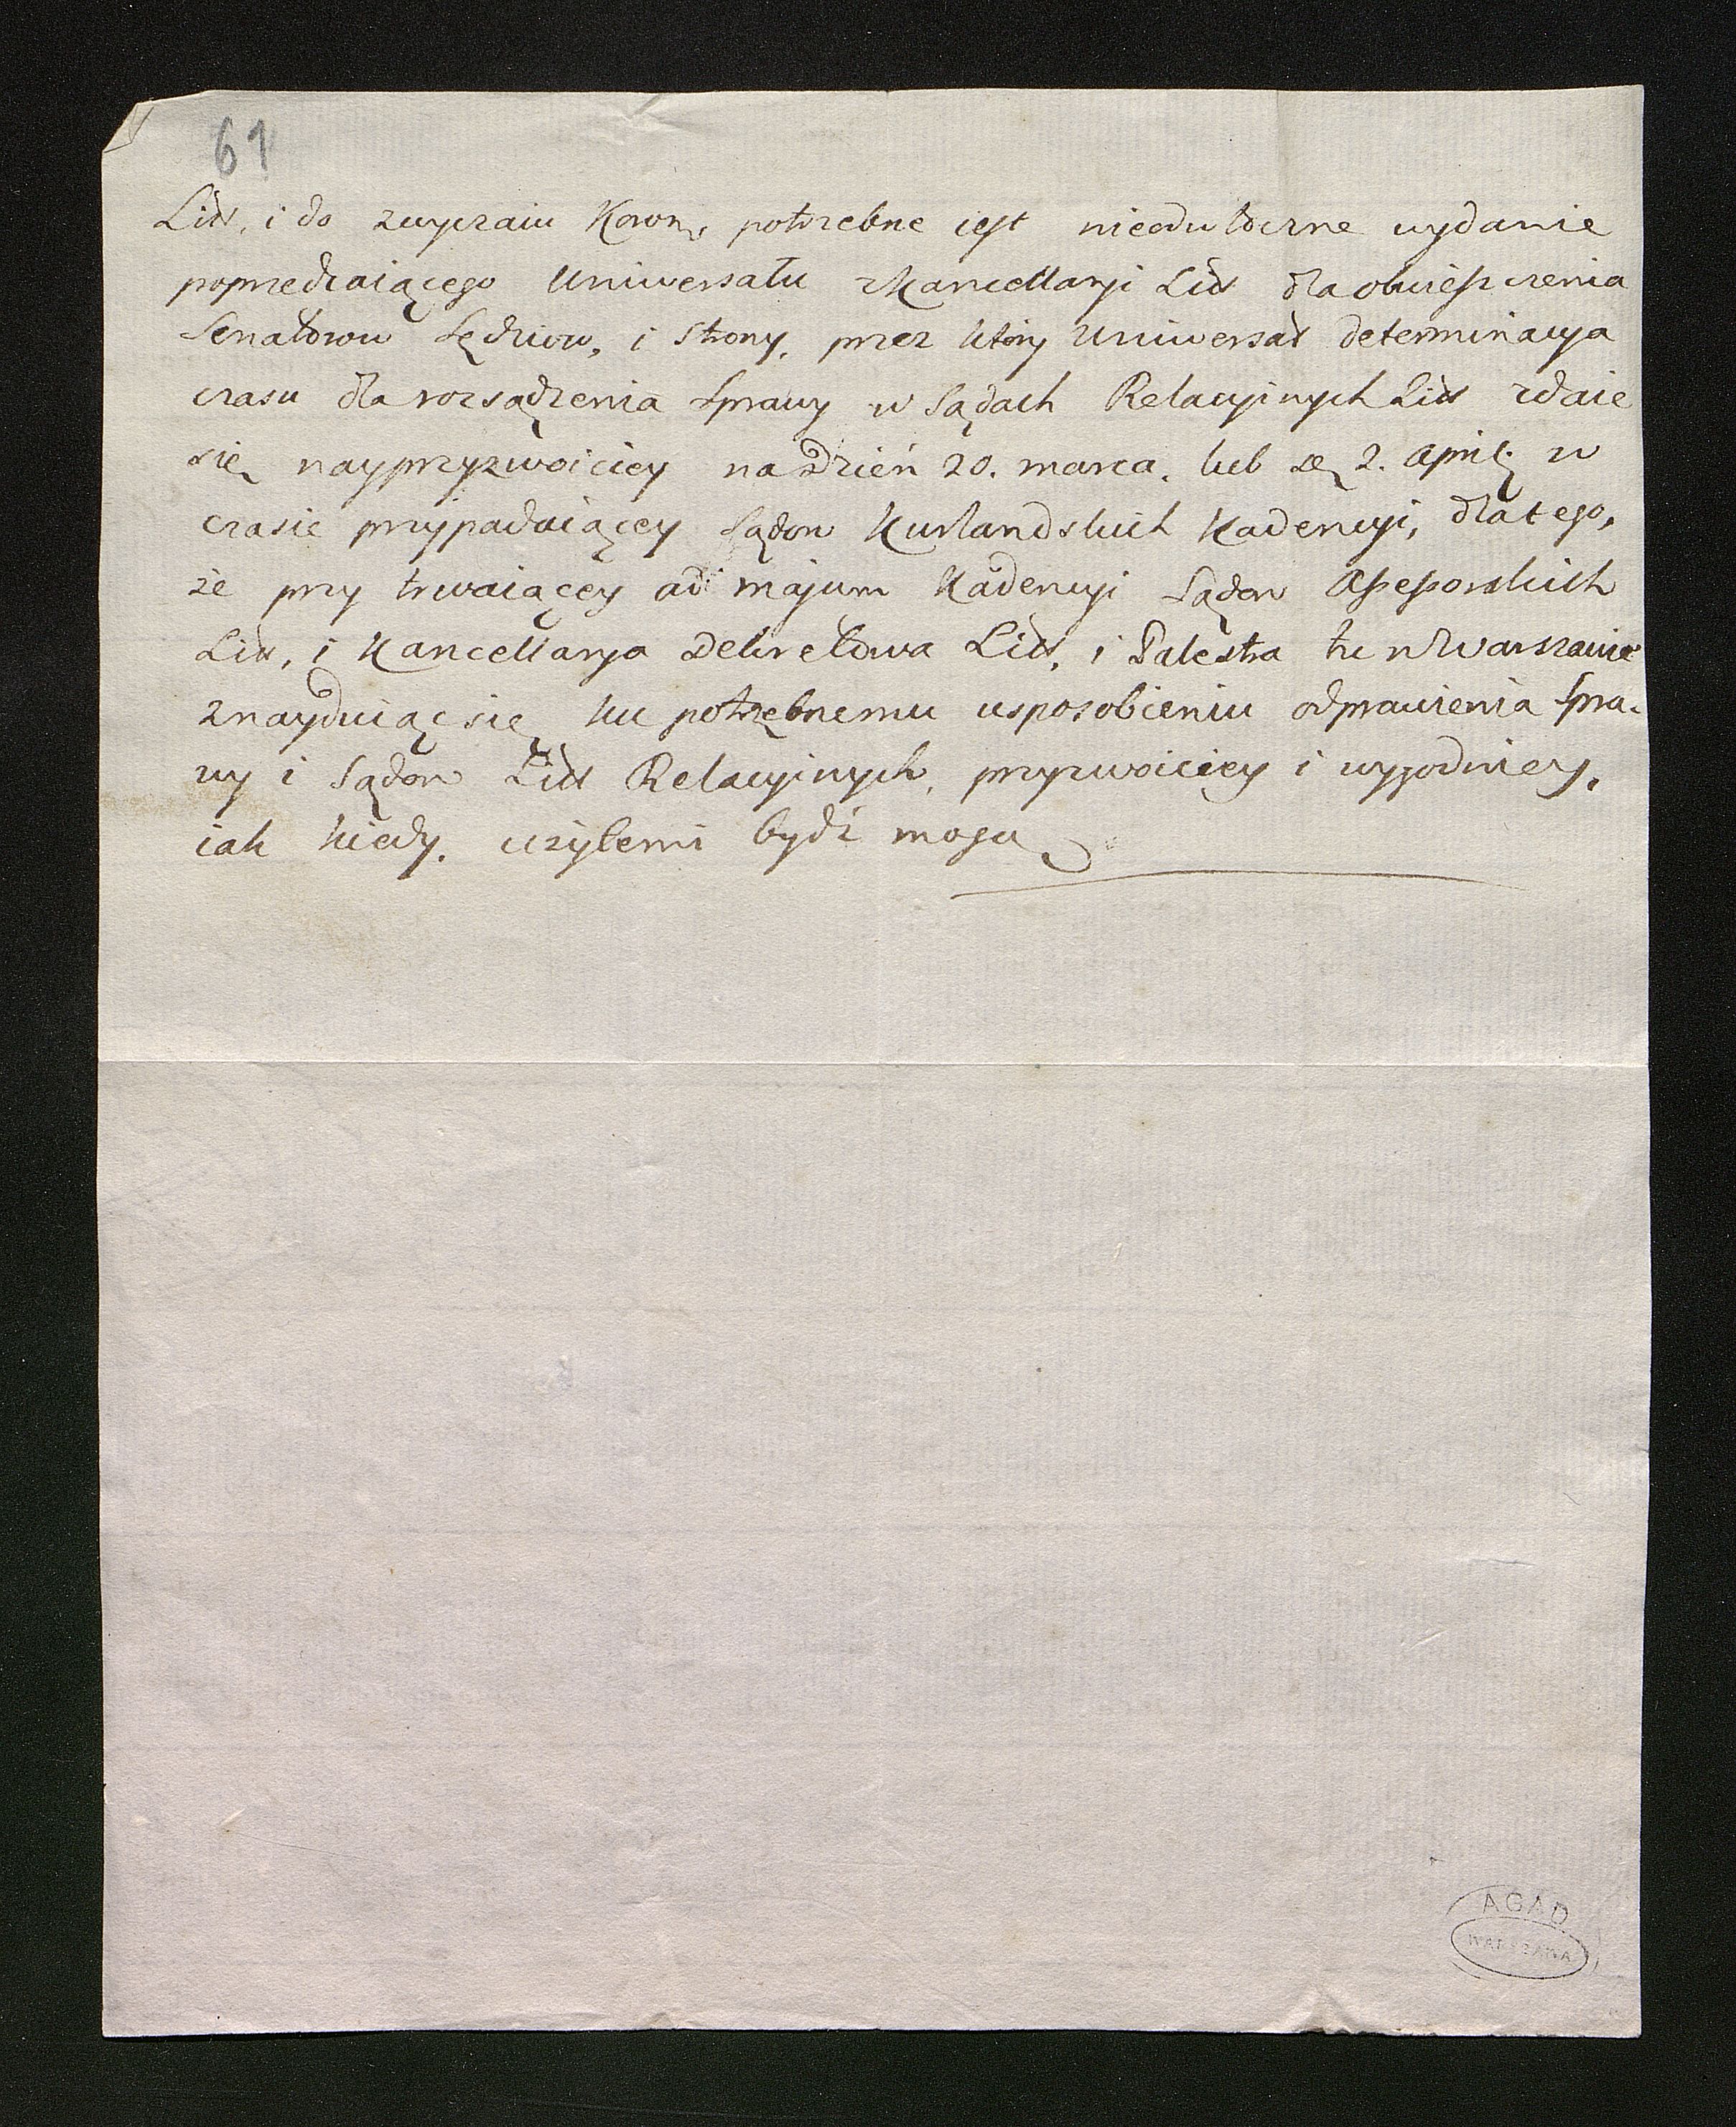 61
Litt, i do zwyczaiu Koron, potrzebne iest nieodwłoczne wydanie
poprzedzaiącego Uniwersału z Kancellaryi Litt dla obwieszczenia
Senatorow Sędziow, i strony, przez ktory Uniwersał determinacya
czasu dla rozsądzenia sprawy w Sądach Relacyinych Litt zdaie
się nayprzyzwoiciey na dzień 20. marca. lub 2. April; w
czasie przypadaiącey Sądow Kurlandskich Kadencyi, dla tego,
że przy trwaiącey ad majum Kadencyi Sądow Assessorskich
Litt, i Kancellarya Dekretowa Litt, i Palestra tu w Warszawie
znayduiąc się, ku potrzebnemu usposobieniu odprawienia spra-
wy i Sądow Litt Relacyinych, przyzwoiciey i wygodniey,
iak kiedy, użytemi bydź mogą
AGAD
WARSZAWA